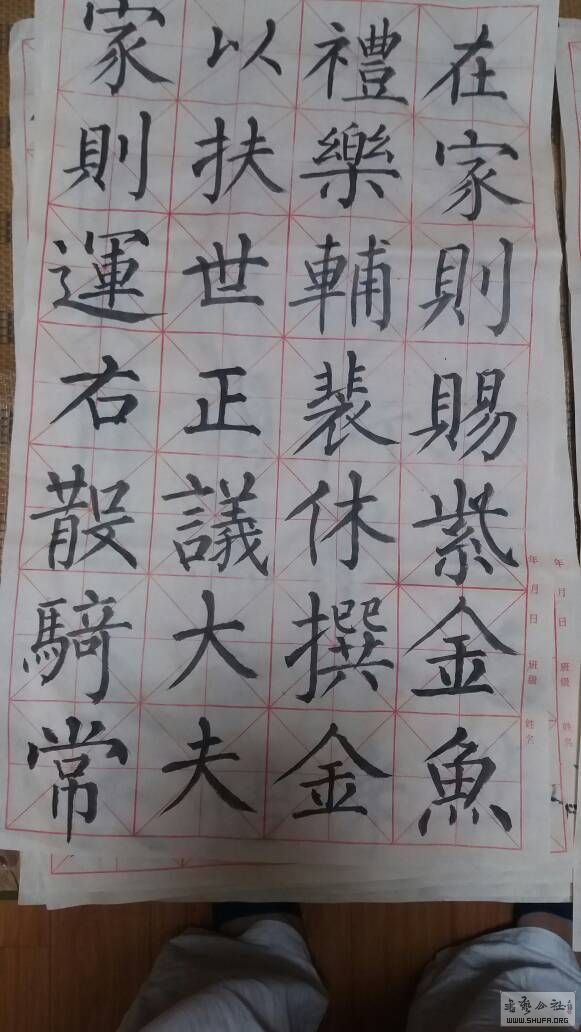 在家則賜紫金魚
禮樂輔裴休撰金
以扶世正議大夫
家則運右散騎常
年 月 日 班級 姓名
年 月 日 班級 姓名
书艺公社
WWW.SHUFA.ORG